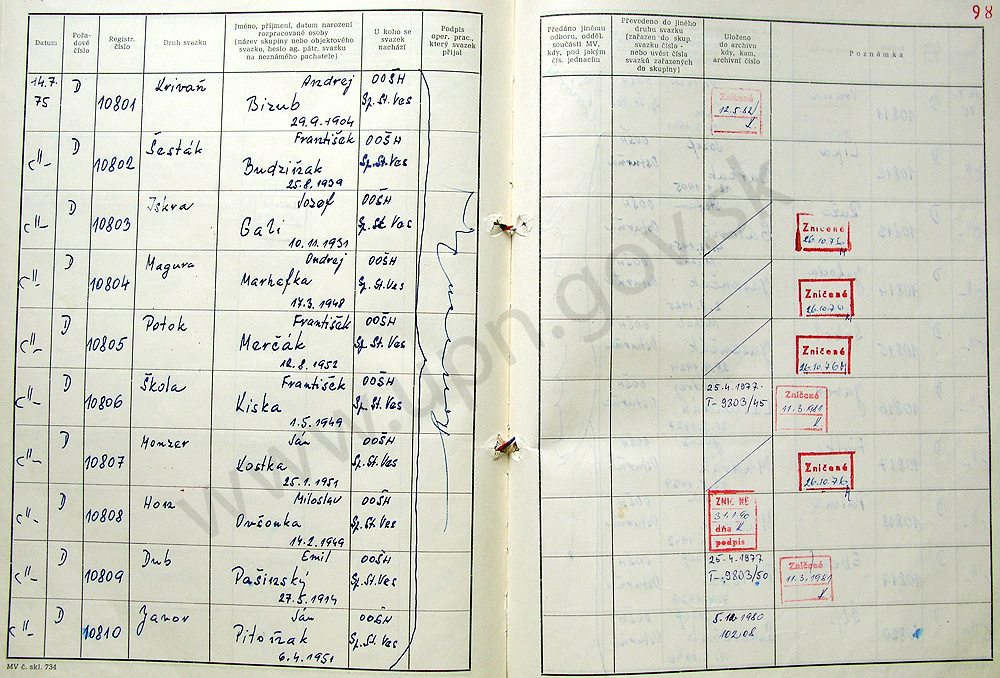 98
Datum
Pořa-
dové
číslo
Registr.
číslo
Druh svazku
Jméno, příjmení, datum narození
rozpracované osoby
(název skupiny nebo objektového
svazku, heslo ag. pátr. svazku
na neznámého pachatele)
U koho se
svazek
nachází
Podpis
oper. prac.,
který svazek
přijal
Předáno jinému
odboru, odděl.
součásti MV,
kdy, pod jakým
čís. jednacím
Převedeno do jiného
druhu svazku
(zařazen do skup.
svazku číslo -
nebo uvést čísla
svazků zařazených
do skupiny)
Uloženo
do archivu
kdy, kam,
archivní číslo
Poznámka
14.7.
75
D
10801
Krivaň
Andrej
Bizub
29.9.1904
OOŠH
Sp.St.Ves
Zničené
12.5.82
D
10802
Šesták
František
Budziňak
25.8.1939
OOŠH
Sp.St.Ves
D
10803
Iskra
Jozef
Gali
10.11.1931
OOŠH
Sp.St.Ves
Zničené
26.10.76
D
10804
Magura
Ondrej
Marhefka
17.3.1948
OOŠH
Sp.St.Ves
Zničené
26.10.76
D
10805
Potok
František
Merčák
12.8.1952
OOŠH
Sp.St.Ves
Zničené
26.10.76
D
10806
Škola
František
Kiska
1.5.1949
OOŠH
Sp.St.Ves
25.4.1977
T-9803/45
Zničené
11.3.1981
D
10807
Monzer
Ján
Kostka
25.1.1951
OOŠH
Sp.St.Ves
Zničené
26.10.76
D
10808
Hora
Miloslav
Ovšonka
14.2.1949
OOŠH
Sp.St.Ves
ZNIČENÉ
31.1.90
dňa
podpis
D
10809
Dub
Emil
Pašinský
27.5.1914
OOŠH
Sp.St.Ves
25.4.1977
T-9803/50
Zničené
11.3.1981
D
10810
Javor
Ján
Pitoňak
6.4.1951
OOŠH
Sp.St.Ves
5.12.1980
10208
MV č. skl. 734
www.upn.gov.sk